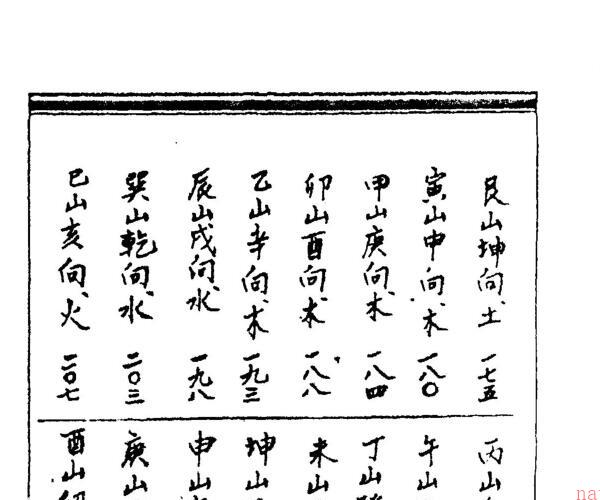 艮山坤向土 一七五
寅山申向木 一八〇
甲山庚向木 一八四
卯山酉向木 一八八
乙山辛向木 一九三
辰山戌向水 一九八
巽山乾向水 二〇三
巳山亥向火 二〇七
丙山
午山
丁山
未山
坤山
申山
庚山
酉山
na